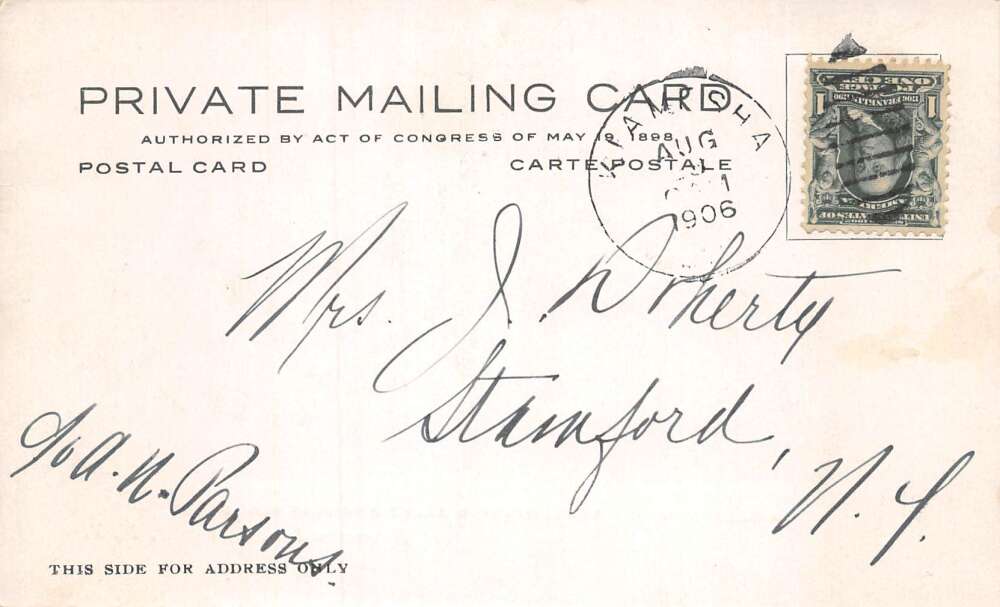 PRIVATE MAILING CARD
AUTHORIZED BY ACT OF CONGRESS OF MAY 19, 1898
POSTAL CARD CARTE POSTALE
KIAMESHA
AUG
1906
ONE CENT
1 1
Mrs. J. Doherty
Stamford,
N. Y.
c/o A. N. Parsons.
THIS SIDE FOR ADDRESS ONLY